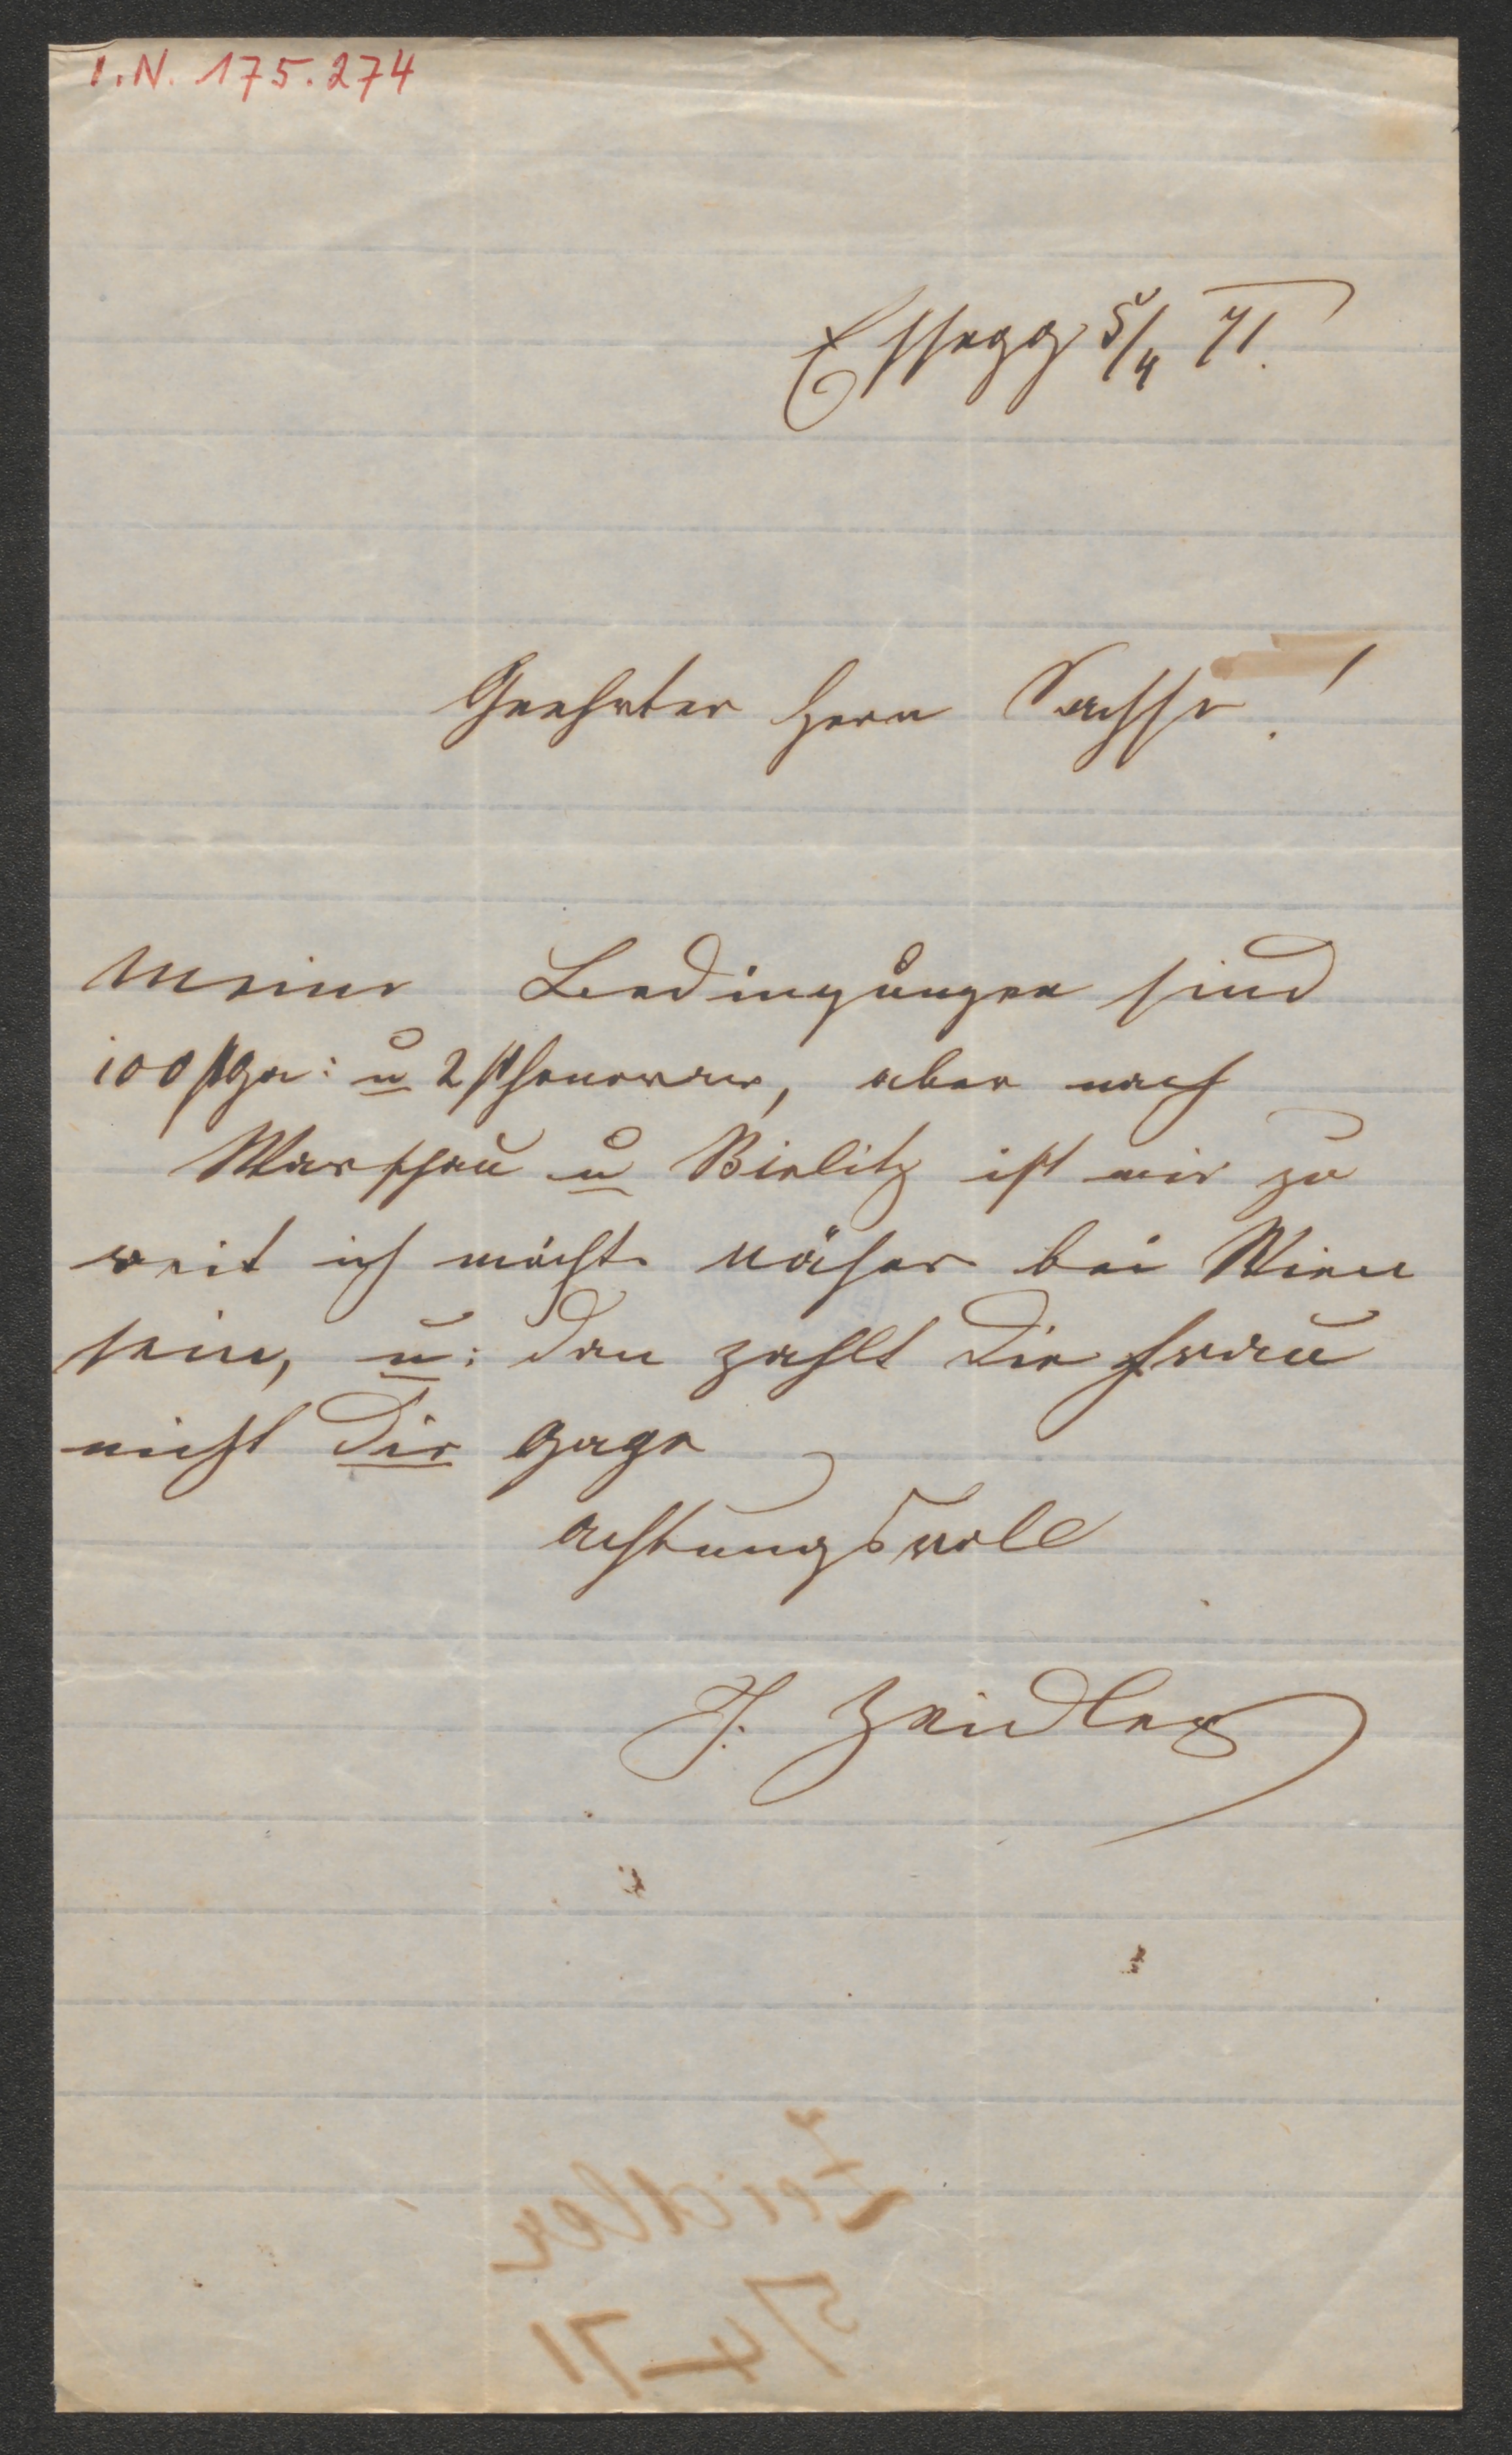 I.N. 175.274
Essegg 5/4 71.
Geehrter Herr Sachse!
Meine Bedingungen sind
100 f Ga: u 2 f Honorar, aber nach
Warschau u Bielitz ist mir zu
weit ich möchte näher bei Wien
sein, u: dan zahlt die Frau
nicht die Gage
achtungsvoll
J. Zeidler
Zeidler
5/4 71